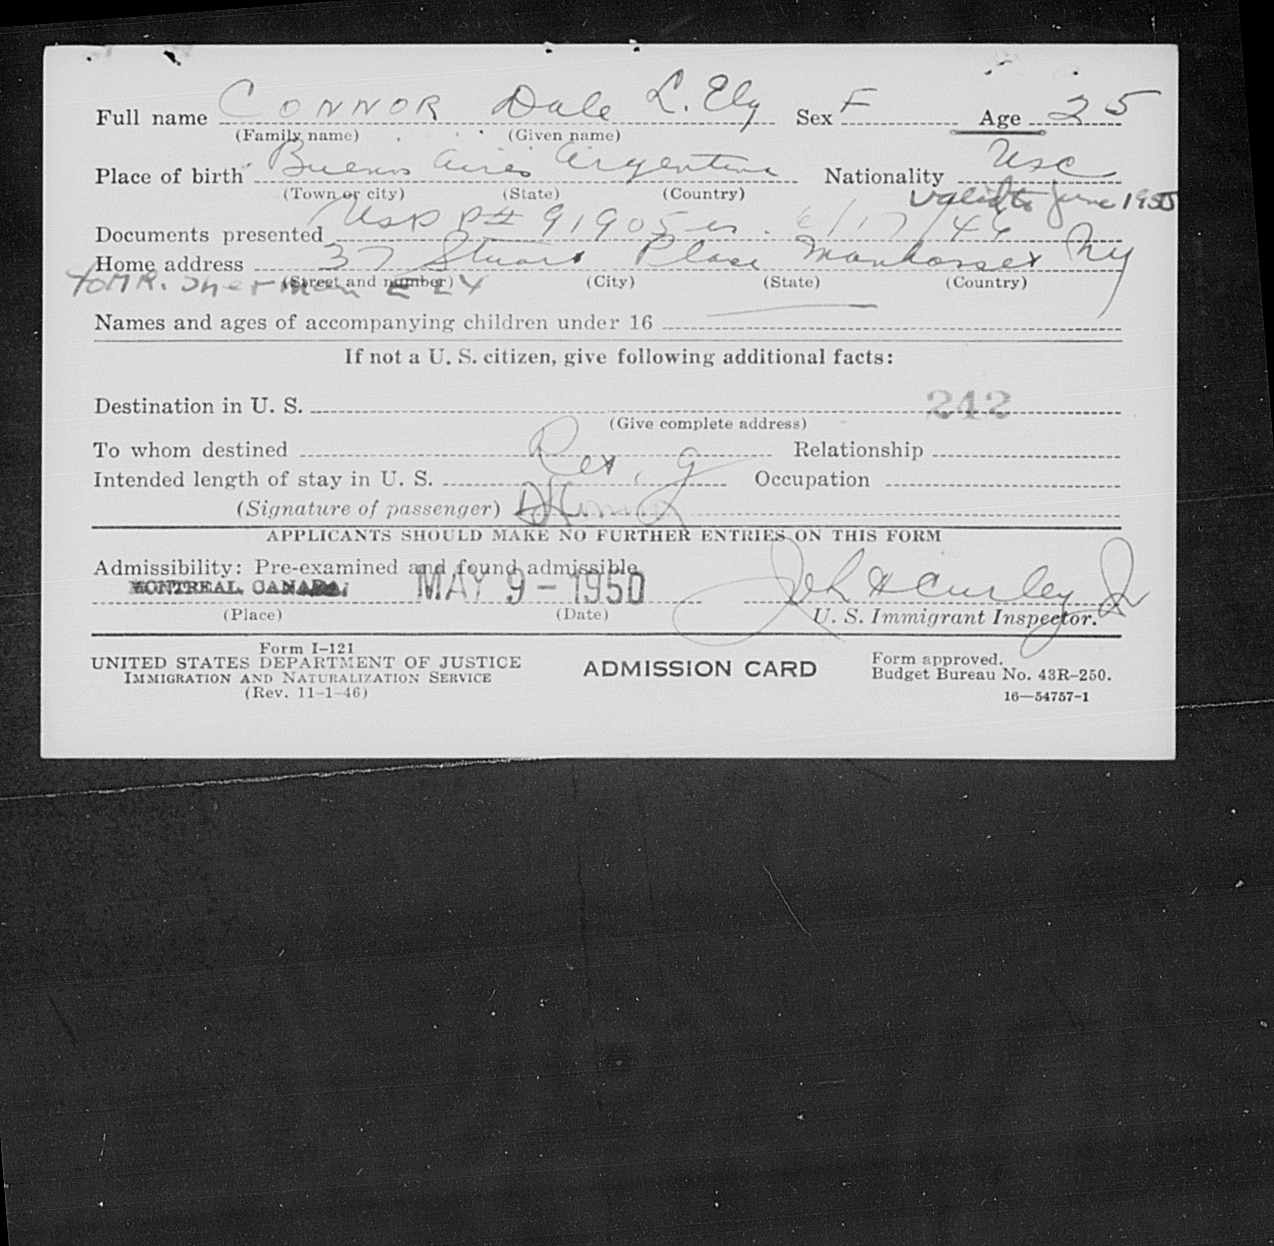 Full name CONNOR Dale L. Ely Sex F Age 25
(Family name) (Given name)
Place of birth Buenos Aires Argentina Nationality USC
(Town or city) (State) (Country)
valid to June 1955
Documents presented USPP# 91905 6/17/44
Home address 37 Stuart Place Manhasset NY
(Street and number) (City) (State) (Country)
to MR. Sherman ELY
Names and ages of accompanying children under 16
If not a U. S. citizen, give following additional facts:
Destination in U. S. 242
(Give complete address)
To whom destined Relationship
Intended length of stay in U. S. Occupation
(Signature of passenger)
APPLICANTS SHOULD MAKE NO FURTHER ENTRIES ON THIS FORM
Admissibility: Pre-examined and found admissible
MONTREAL CANADA MAY 9 - 1950 John H Curley Jr
(Place) (Date) U. S. Immigrant Inspector.
Form I-121
UNITED STATES DEPARTMENT OF JUSTICE
IMMIGRATION AND NATURALIZATION SERVICE
(Rev. 11-1-46)
ADMISSION CARD
Form approved.
Budget Bureau No. 43R-250.
16—54757-1